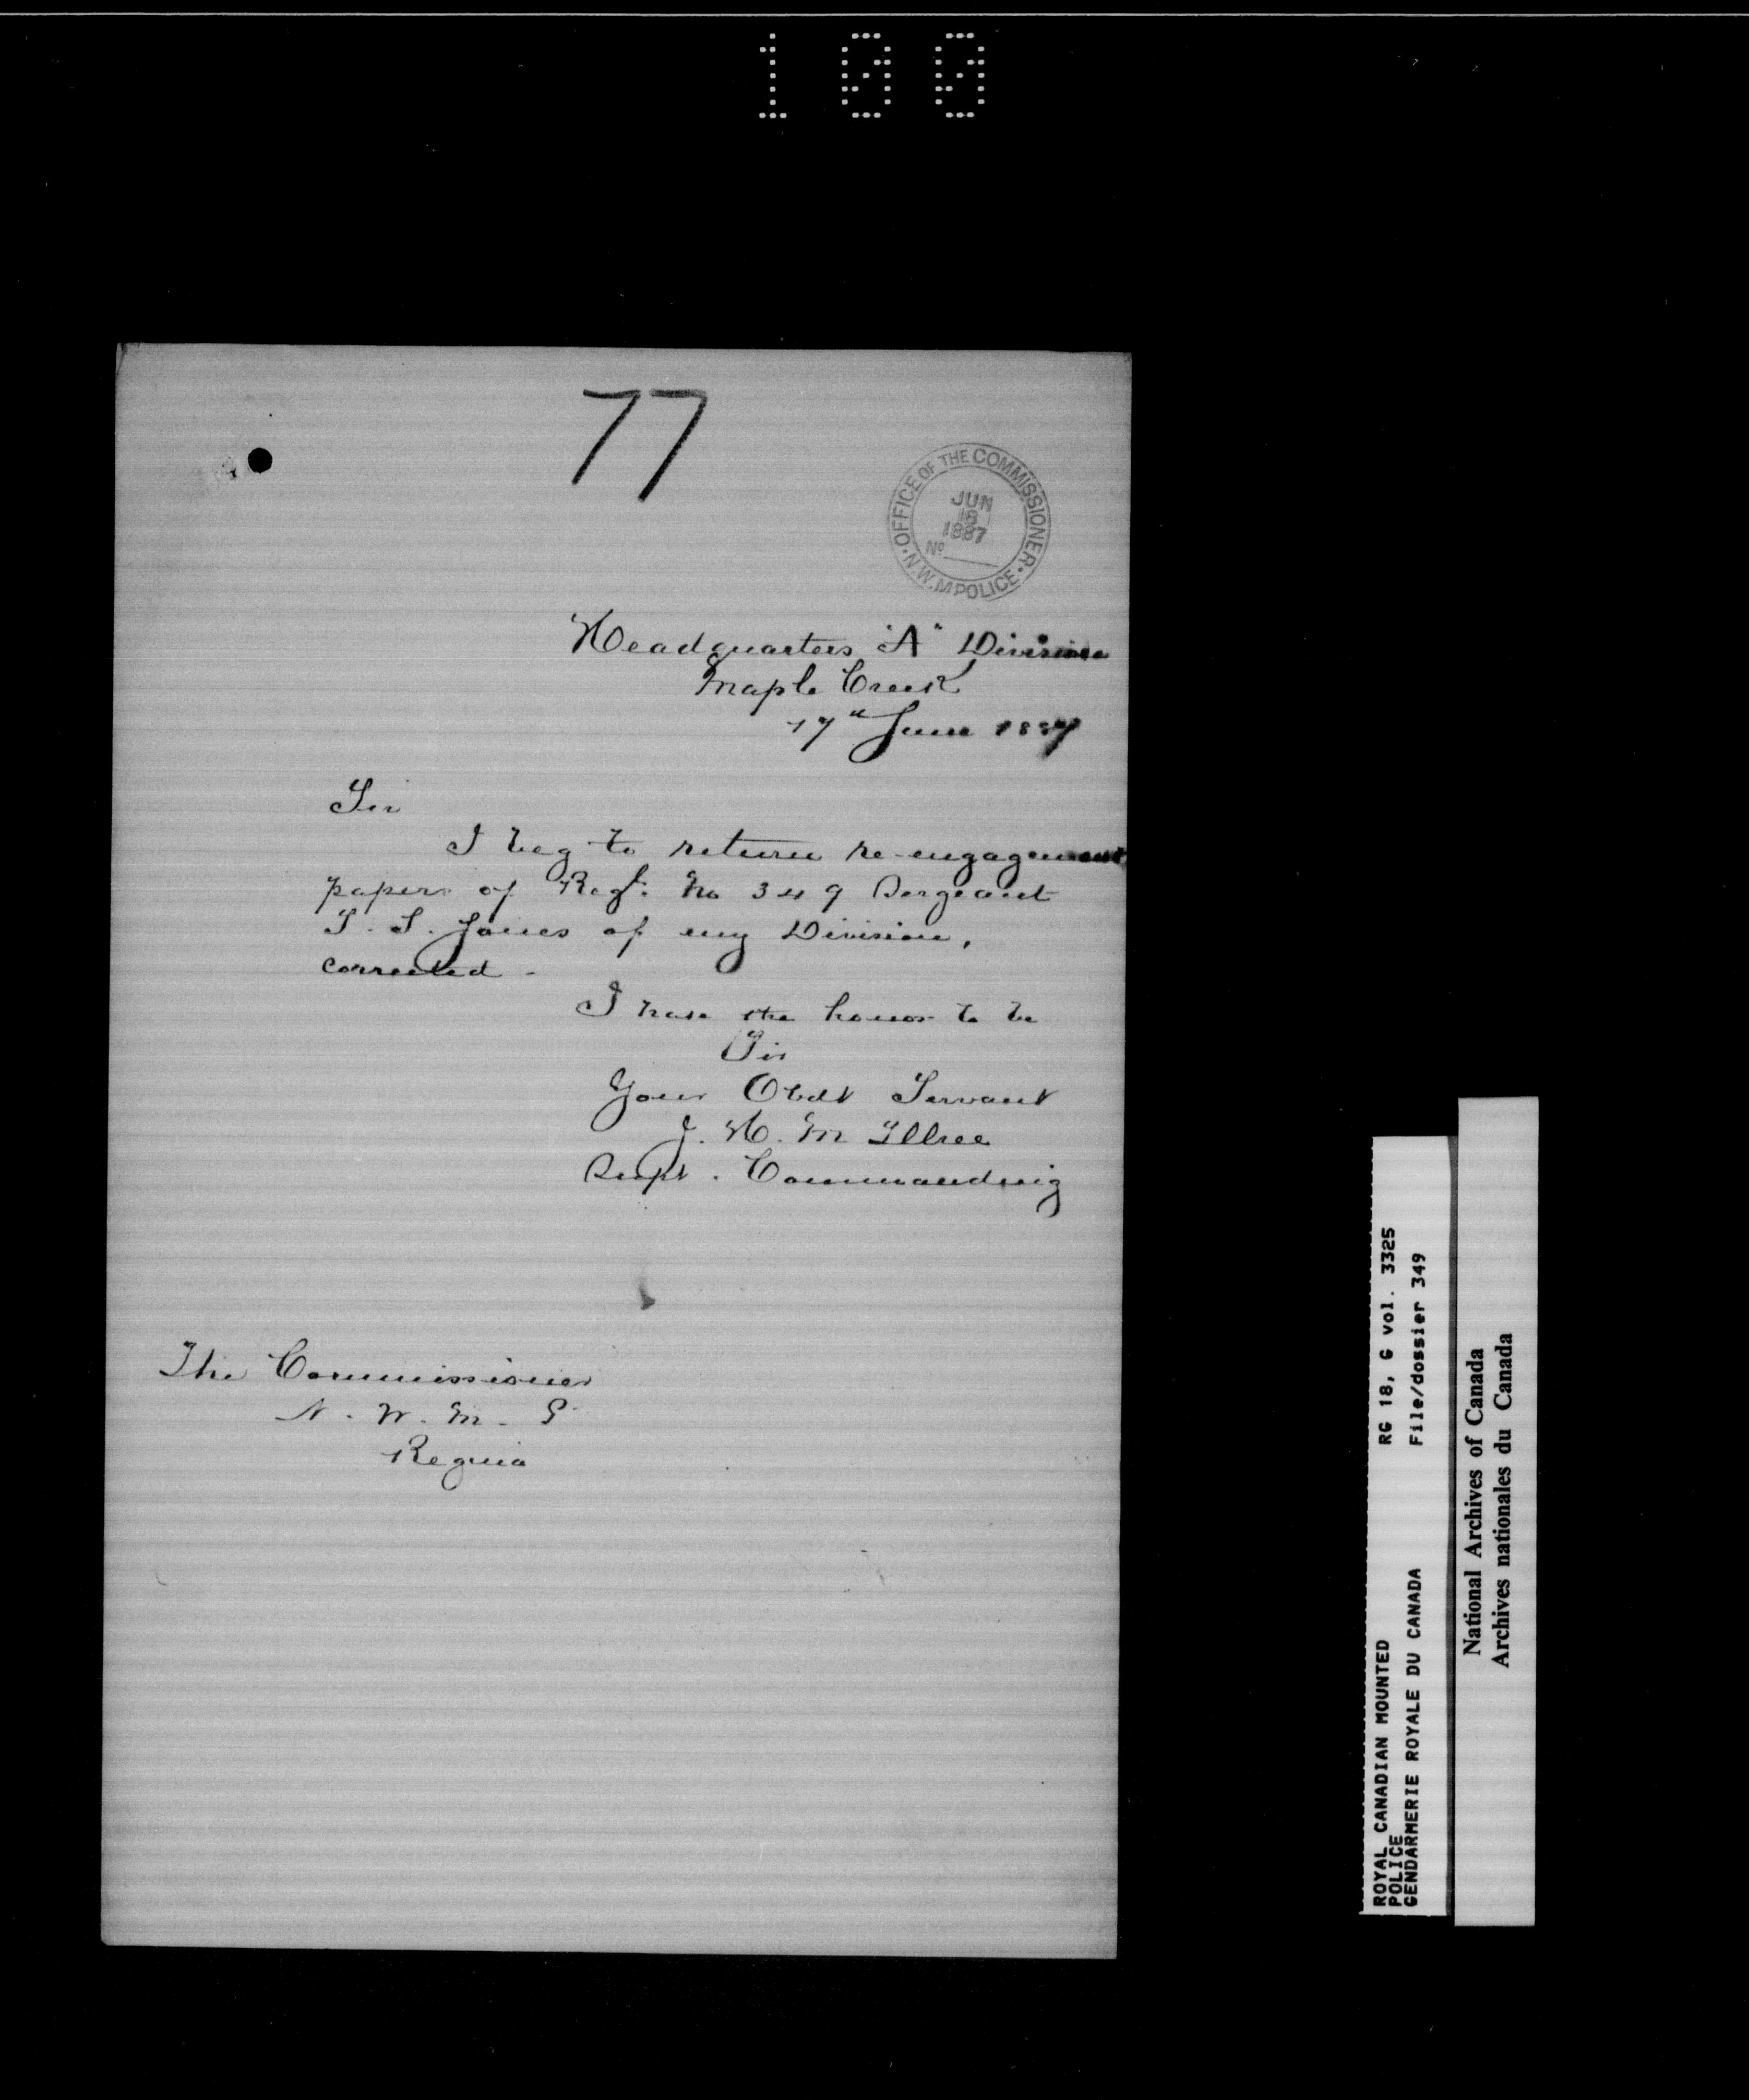 100
77
OFFICE OF THE COMMISSIONER
JUN
18
1887
No
N.W.M POLICE
Headquarters "A" Division
Maple Creek
17th June 1887
Sir
I beg to return re-engagement
papers of Regt. No 349 Sergeant
S. Jones of my Division,
corrected -
I have the honor to be
Sir
Your Obdt Servant
J. H. McIllree
Supt. Commanding
The Commissioner
N. W. M. P
Regina
ROYAL CANADIAN MOUNTED
POLICE
GENDARMERIE ROYALE DU CANADA
RG 18, G vol. 3325
File/dossier 349
National Archives of Canada
Archives nationales du Canada